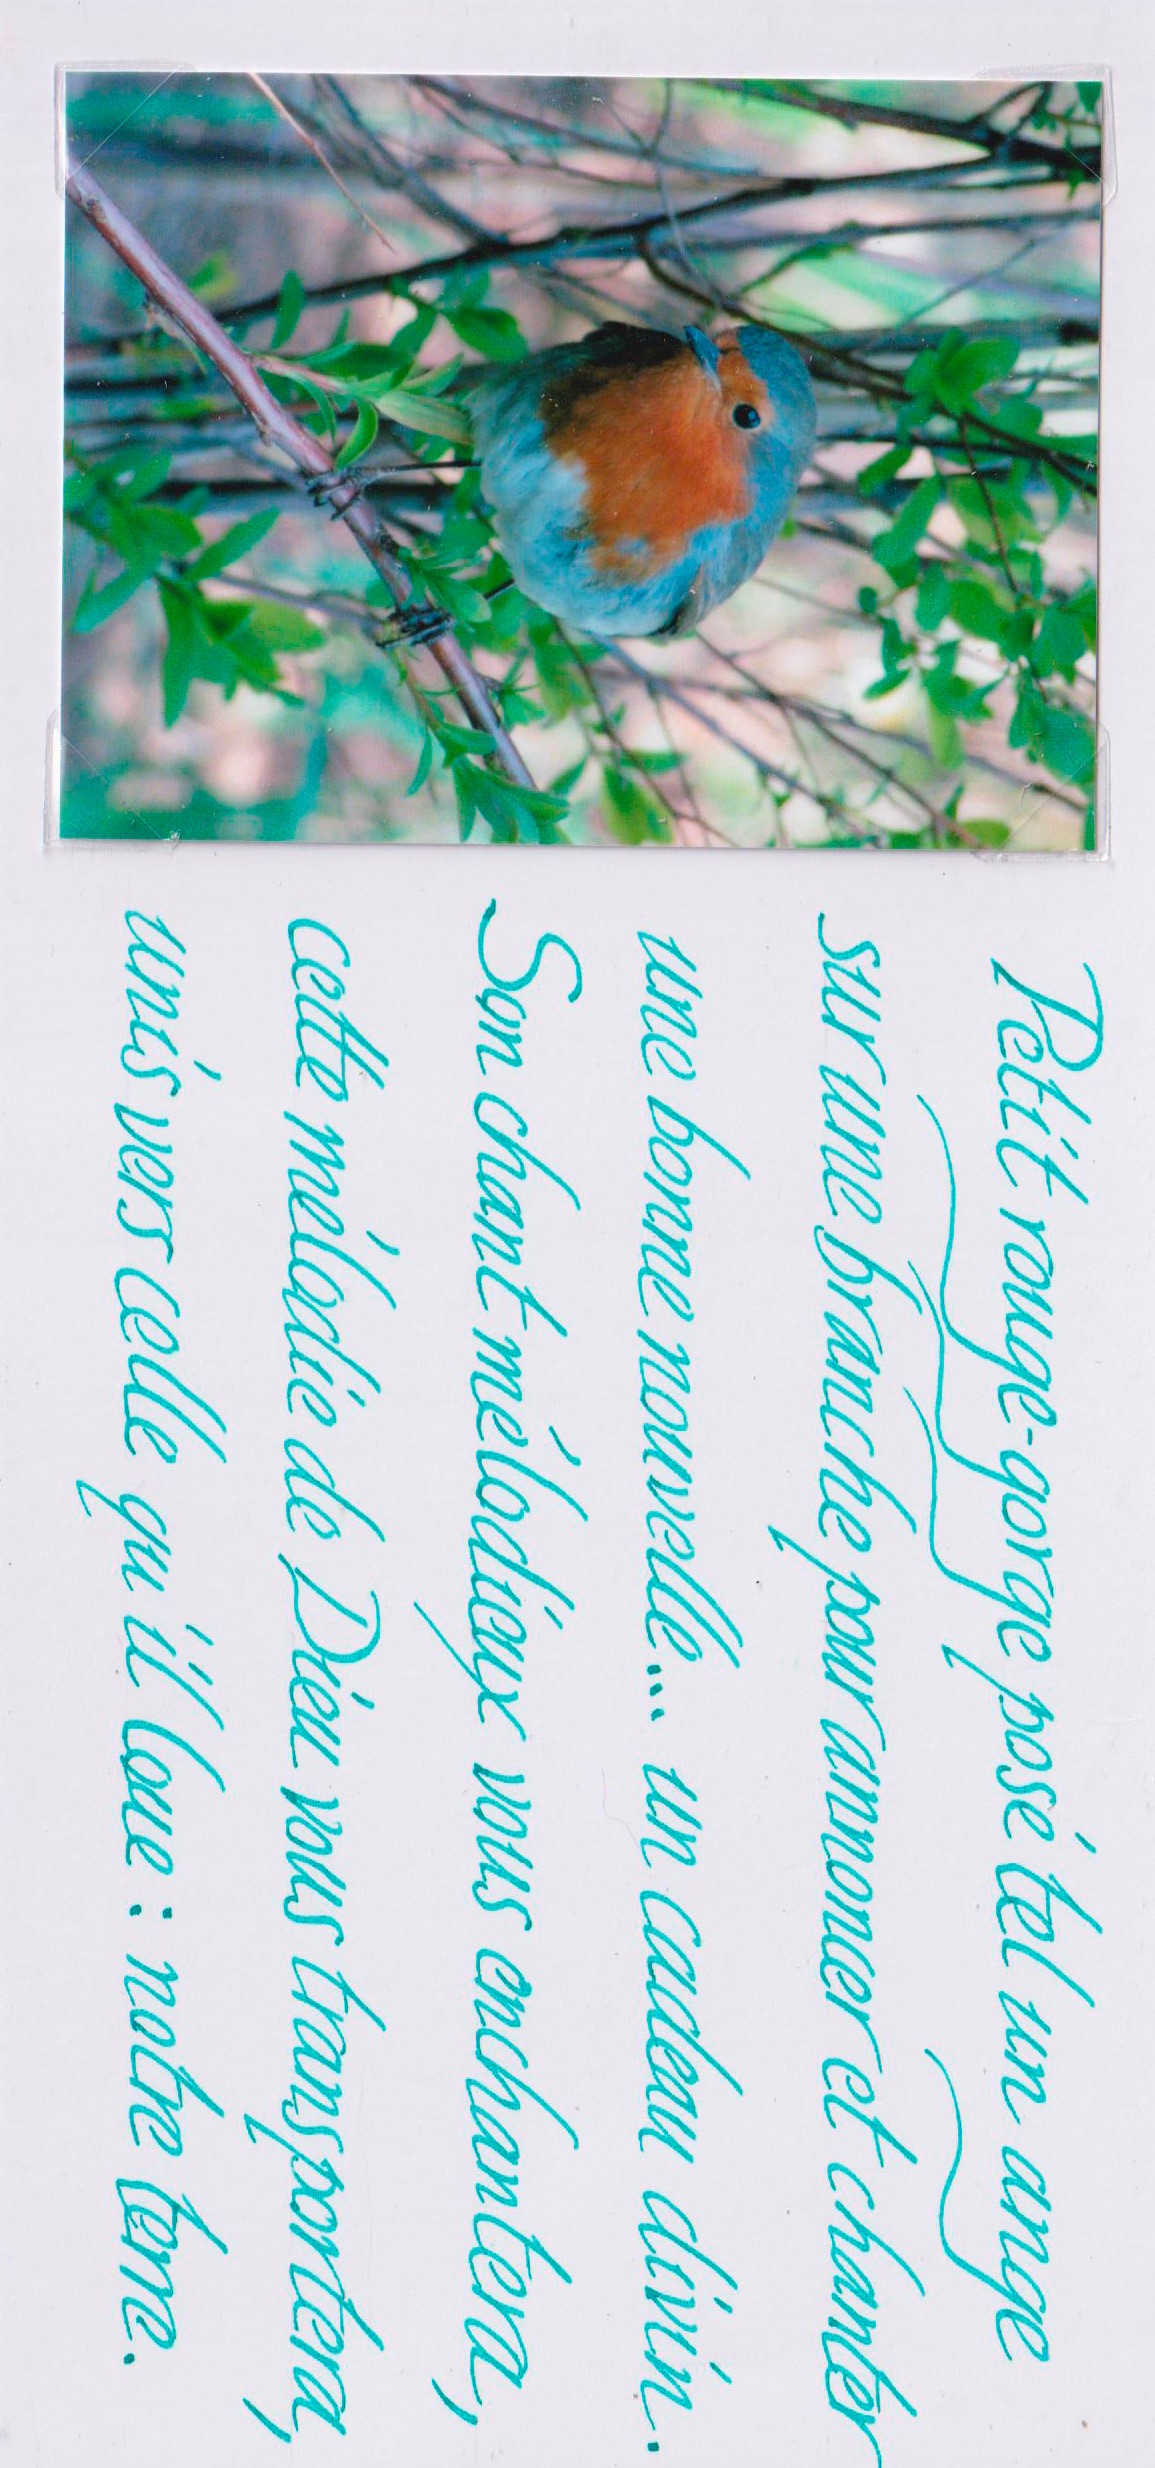 Petit rouge-gorge posé tel un ange
sur une branche pour annoncer et chanter
une bonne nouvelle... un cadeau divin.
Son chant mélodieux vous enchantera,
cette mélodie de Dieu vous transportera,
unis vers celle qu'il loue : notre terre.